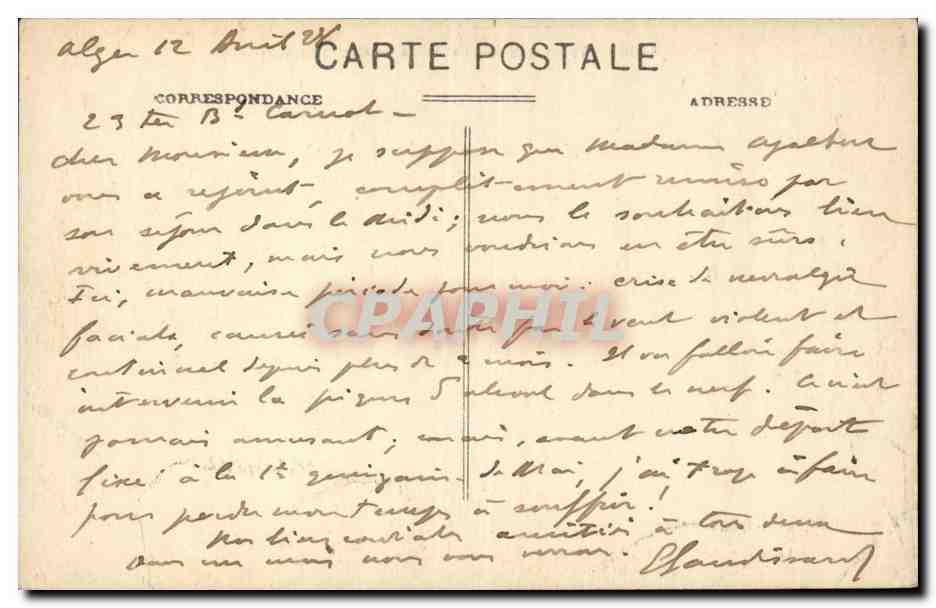 Alger 12 Avril
CARTE POSTALE
CORRESPONDANCE
ADRESSE
23 ter Bd Carnot -
Cher Monsieur, je suppose que Madame
vous a rejoint, complètement remise par
son séjour dans le Midi; nous le souhaitions bien
vivement, mais nous voudrions en être sûrs.
Ici, mauvaise période pour moi: crise de névralgie
faciale, causée sans doute par le vent violent et
continuel depuis plus de 2 mois. Il va falloir faire
intervenir la piqûre d'alcool dans le nerf. Ce n'est
jamais amusant; mais, avant notre départ
fixé à la 1re quinzaine de Mai, j'ai trop à faire
pour perdre mon temps à souffrir!
Nos bien cordiales amitiés à tous deux
Dans un mois nous vous verrons.
CPAPHIL